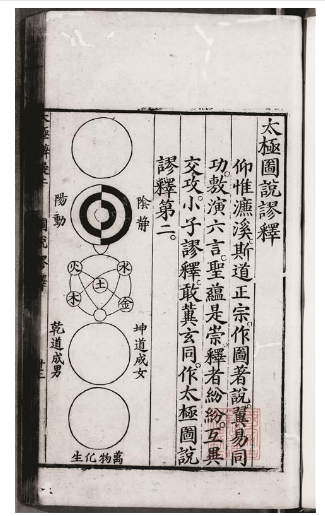 太極圖說謬釋
仰惟濂溪斯道正宗。作圖著說翼易同
功。敷演六言。聖蘊是崇釋者紛紛。互異
交攻。小子謬釋。敢冀玄同。作太極圖說
謬釋第二。
陰靜
陽動
水
火
土
金
木
坤道成女
乾道成男
萬物化生